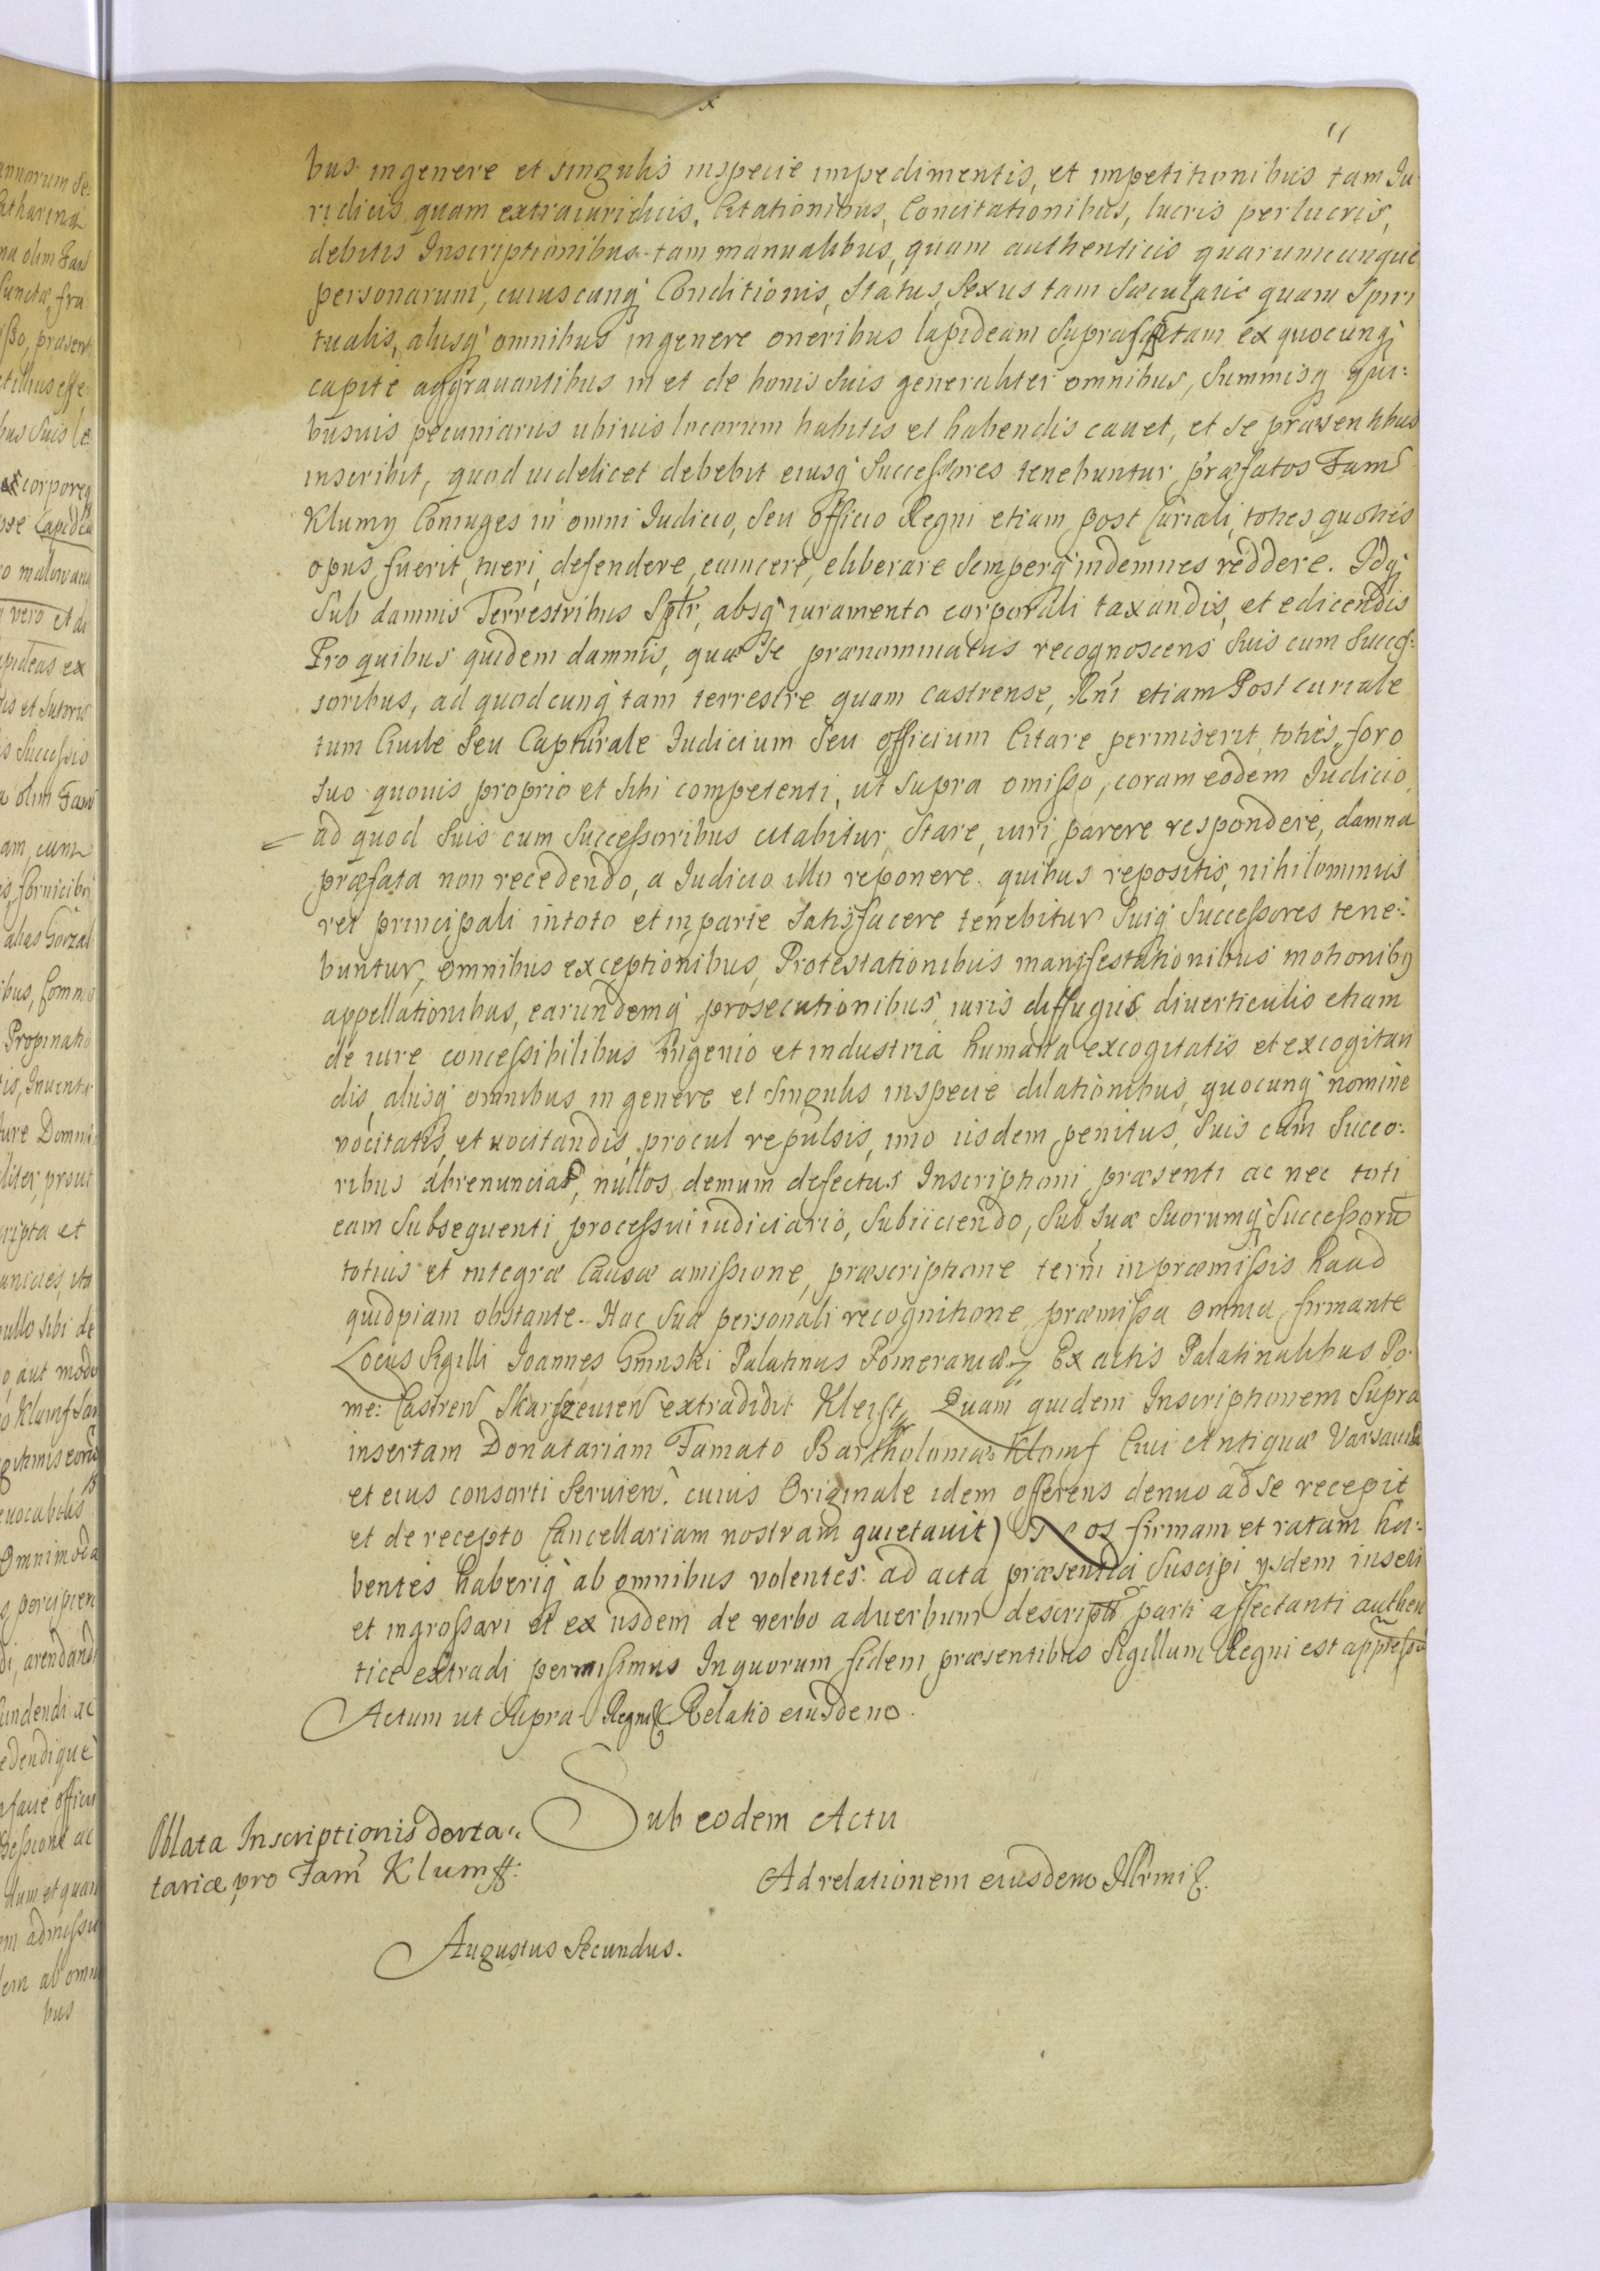 11
bus in genere et singulis in specie impedimentis, et impetitionibus tam Iu
ridicis quam extraiuridicis, Citationibus, Concitationibus, lucris perlucris,
debitis Inscriptionibus tam manualibus, quam authenticis quarumcunque
personarum, cuiuscunq Conditionis, Status, Sexus tam Sæcularis quam Spiri
tualis, alijsq omnibus in genere oneribus lapideam supra tam ex quocunq
capite aggrauantibus in et de bonis suis generaliter omnibus, Summisq qui:
busuis pecuniarijs ubiuis locorum habitis et habendis cauet, et se præsentibus
inscribit, quod uidelicet debebit eiusq Successores tenebuntur, præfatos Fam
Klumy Coniuges in omni Iudicio, seu officio Regni etiam post Curiali, toties quoties
opus fuerit, tueri, defendere, euincere, eliberare Semperq indemnes reddere. Idq
Sub damnis Terrestribus Sptr, absq iuramento corporali taxandis, et edicendis
Pro quibus quidem damnis, quæ se prænominatus recognoscens Suis cum Succes:
soribus, ad quodcunq tam terrestre quam castrense, Rni etiam Post curiale
tum Ciuile Seu Capturale Iudicium Seu officium Citare permiserit, toties, foro
suo quouis proprio et sibi competenti, ut supra omisso, coram eodem Iudicio,
ad quod Suis cum Successoribus citabitur, Stare, iuri parere respondere, damna
præfata non recedendo, a Iudicio illo reponere. quibus repositis, nihilominus
rei principali in toto et in parte Satisfacere tenebitur Suiq Successores tene:
buntur, omnibus exceptionibus, Protestationibus manifestationibus motionibq
appellationibus, earundemq prosecutionibus, iuris diffugijs diuerticulis etiam
de iure concessibilibus Ingenio et industria humana excogitatis et excogitan
dis, alijsq omnibus in genere et singulis in specie dilationibus, quocunq nomine
vocitatis, et uocitandis, procul repulsis, imo iisdem penitus, Suis cum Succo:
ribus abrenunciat, nullos demum defectus Inscriptioni præsenti ac nec toti
eam Subsequenti processui iudiciario, Subijciendo, Sub suæ Suorumq Successorũ
totius et integræ Causæ amissione, præscriptione terñi in præmissis haud
quidpiam obstante. Hac Sua personali recognitione præmissa omnia firmante
Locus Sigilli Joannes Gninski Palatinus Pomeraniæ Ex actis Palatinalibus Po-
me: Castren Skarszeuien extradidit Kleist Quam quidem Inscriptionem Supra
insertam Donatariam Famato Bartholomæo Klumf Ciui Antiquæ Varsauiæ
et eius consorti Seruien. cuius Originale idem offerens denuo ad se recepit
et de recepto Cancellariam nostram quietauit) Nos firmam et ratam ha:
bentes haberiq ab omnibus volentes. ad acta præsentia Suscipi ysdem inseri
et ingrossari et ex iisdem de verbo aduerbum descriptũ parti affectanti authen
tice extradi permisimus In quorum fidem præsentibus Sigillum Regni est appressũ
Actum ut Supra Regni Relatio eiusdem
Sub eodem Actu
Oblata Inscriptionis dota:
tariæ pro Fam Klumff:
Ad relationem eiusdem Illrmi
Augustus Secundus.